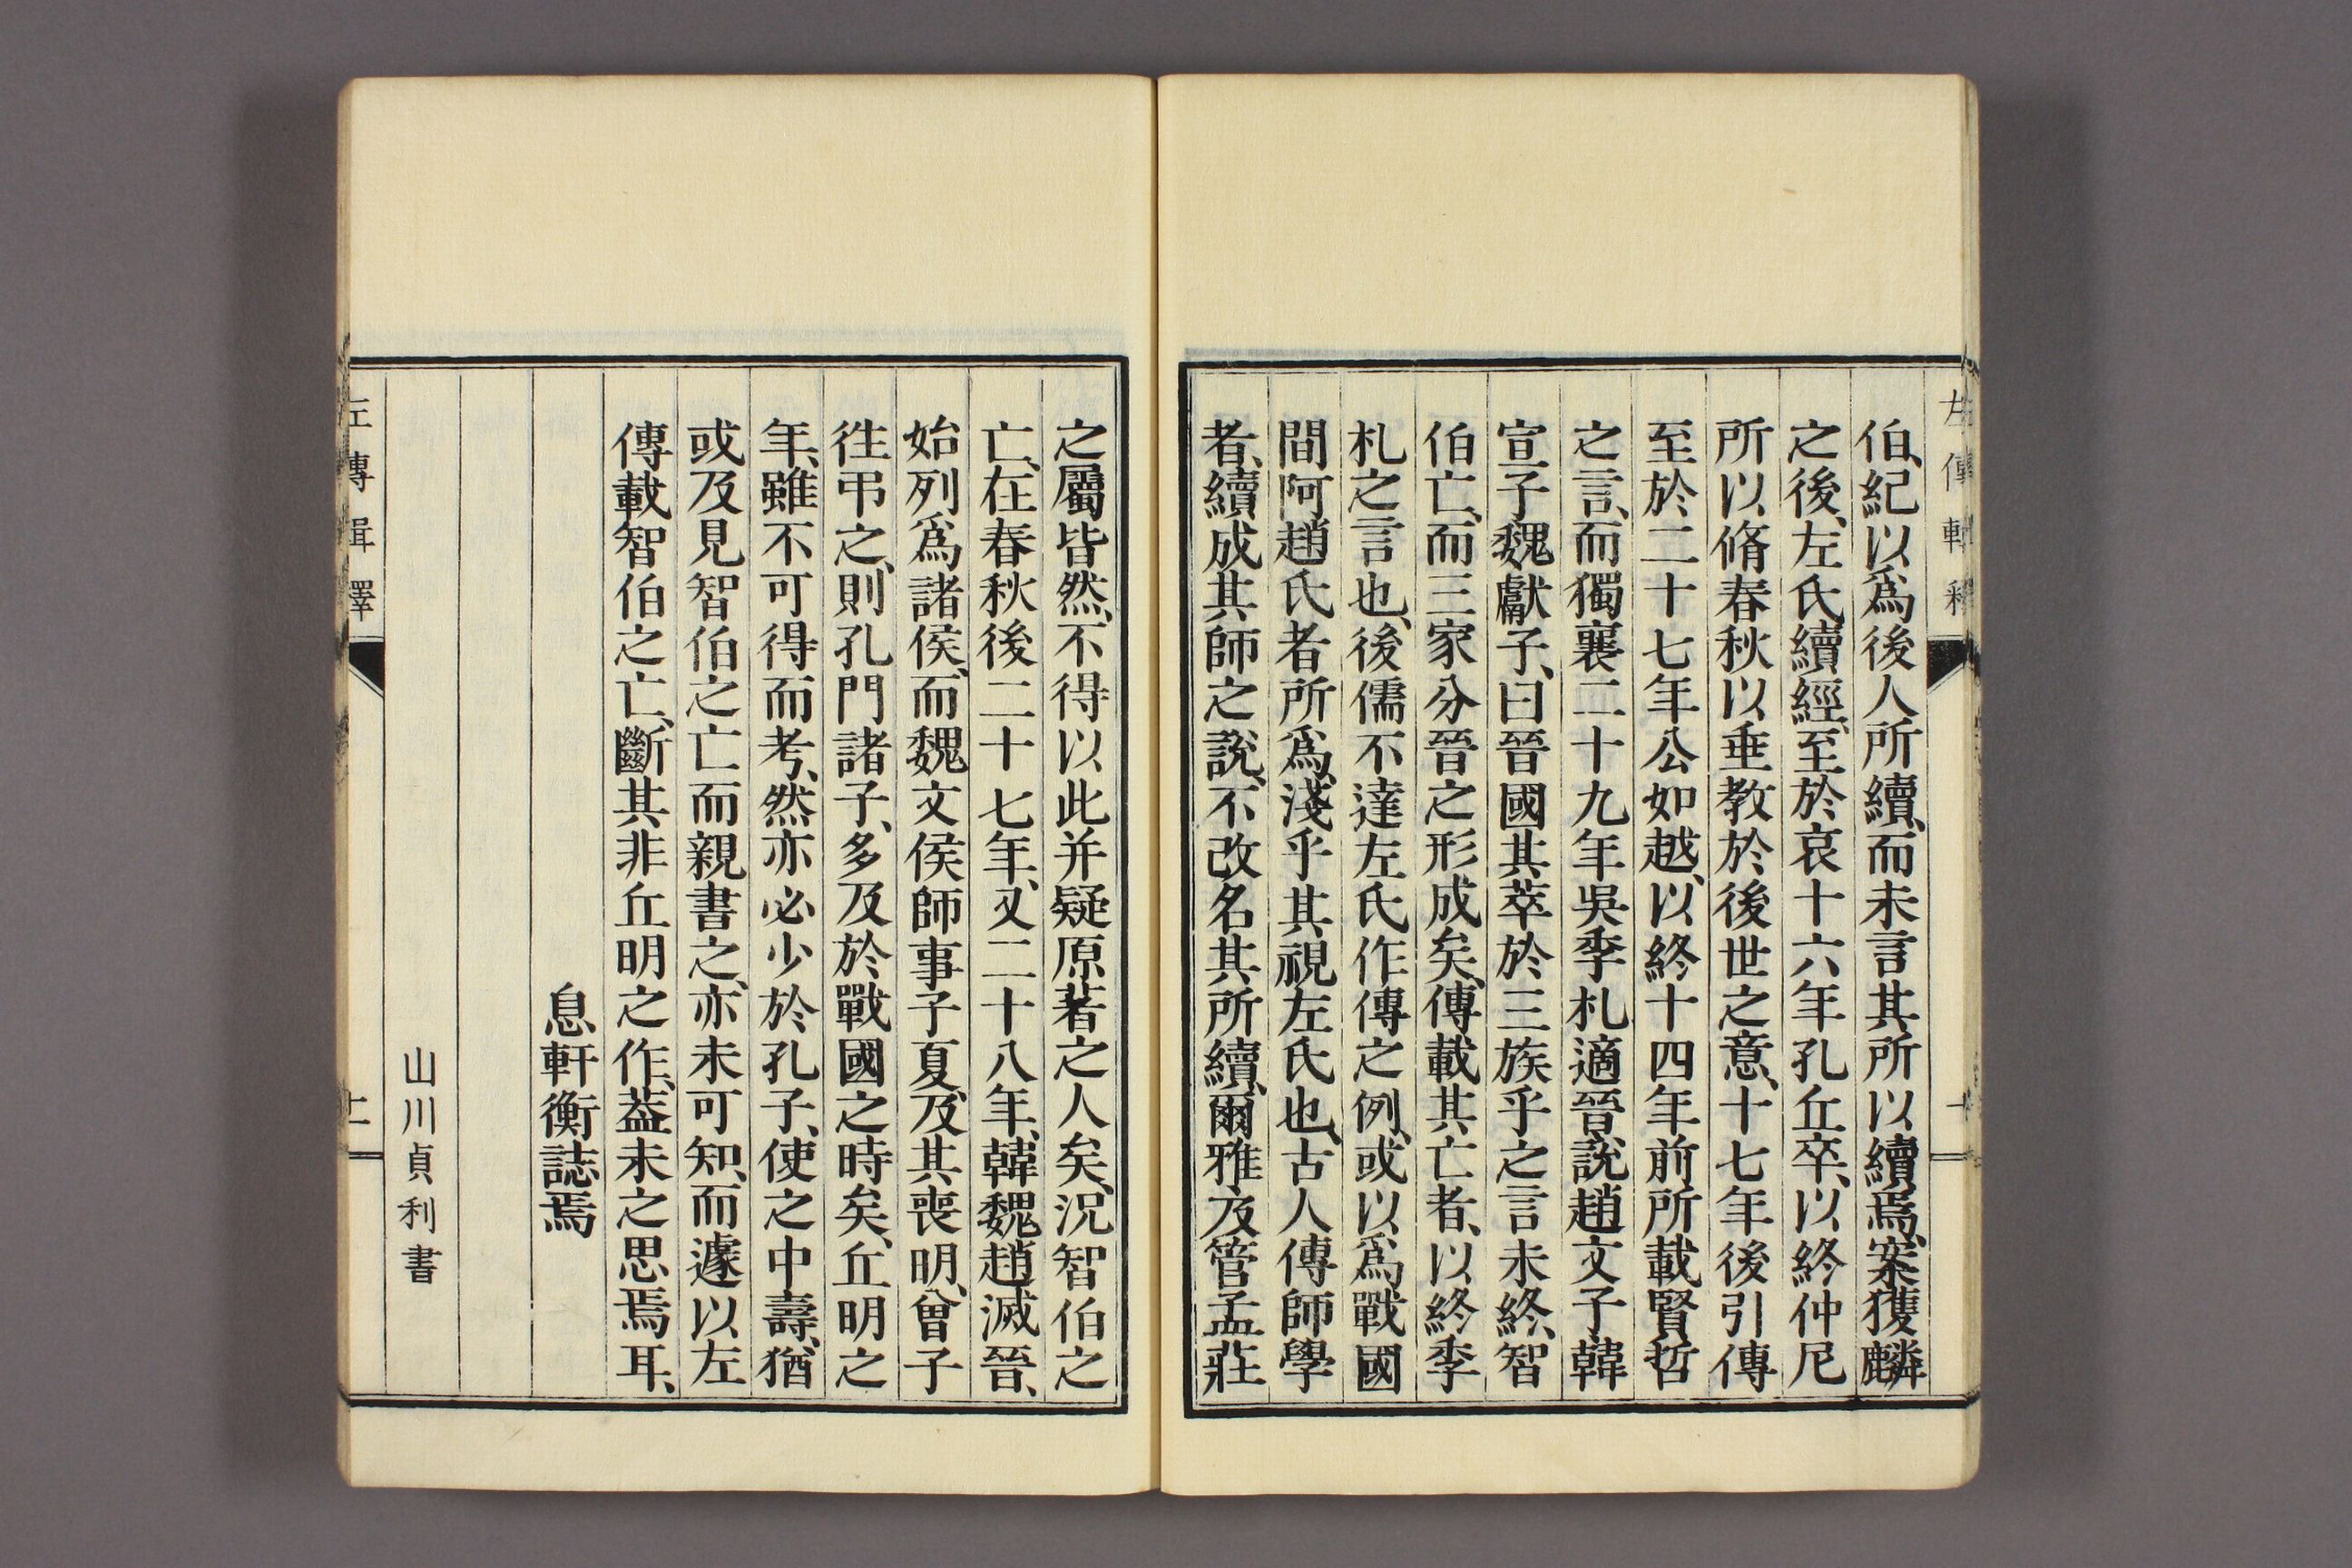 左傳輯釋
伯、紀以爲後人所續、而未言其所以續焉、案獲麟
之後、左氏續經、至於哀十六年孔丘卒、以終仲尼
所以脩春秋以垂教於後世之意、十七年後引傳
至於二十七年公如越、以終十四年前所載賢哲
之言、而獨襄二十九年吳季札適晉說趙文子韓
宣子魏獻子、曰晉國其萃於三族乎之言未終、智
伯亡、而三家分晉之形成矣、傳載其亡者、以終季
札之言也、後儒不達左氏作傳之例、或以爲戰國
間阿趙氏者所爲、淺乎其視左氏也、古人傳師學
者、續成其師之說、不改名其所續、爾雅及管孟莊
之屬皆然、不得以此并疑原著之人矣、況智伯之
亡、在春秋後二十七年、又二十八年、韓魏趙滅晉、
始列爲諸侯、而魏文侯師事子夏、及其喪明、曾子
徃弔之、則孔門諸子、多及於戰國之時矣、丘明之
年、雖不可得而考、然亦必少於孔子、使之中壽、猶
或及見智伯之亡而親書之、亦未可知、而遽以左
傳載智伯之亡、斷其非丘明之作、葢未之思焉耳、
息軒衡誌焉
山川貞利書
左傳輯釋